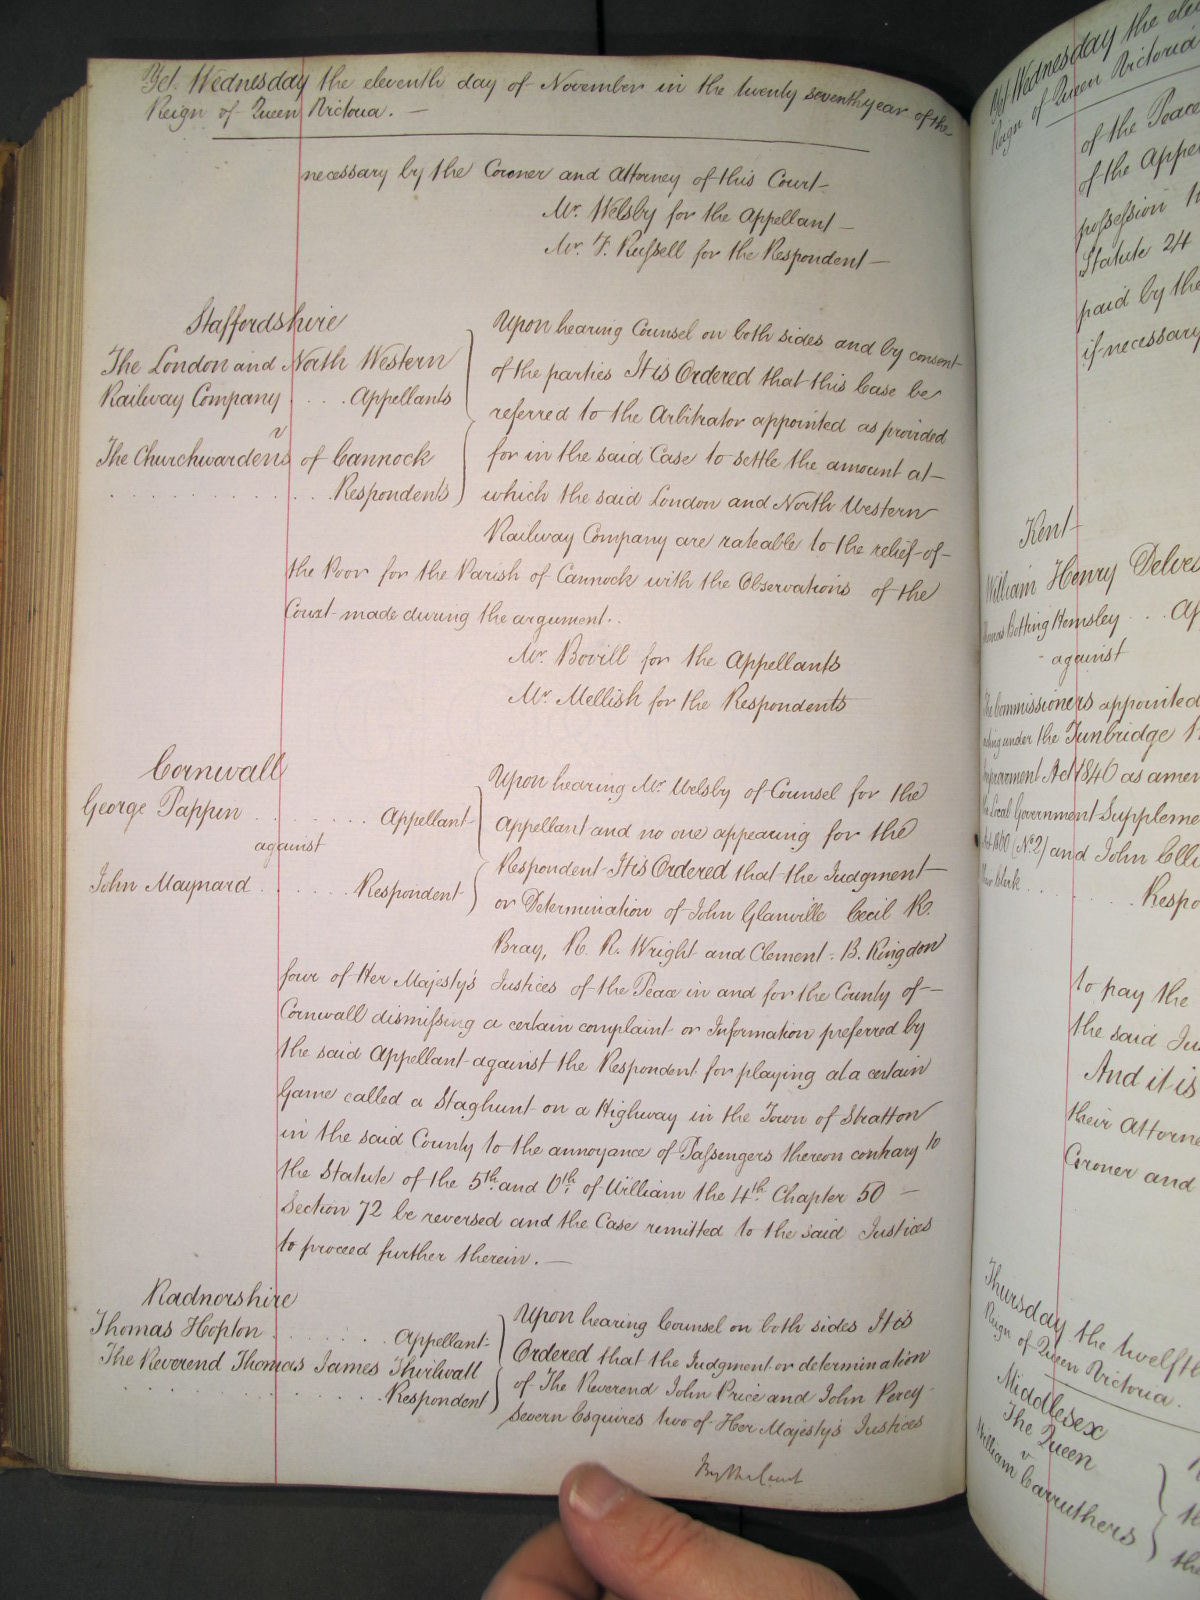 Yet Wednesday the eleventh day of November in the twenty seventh year of the
Reign of Queen Victoria. —
necessary by the Coroner and Attorney of this Court —
Mr. Welsby for the Appellant —
Mr. F. Russell for the Respondent —
Staffordshire
The London and North Western
Railway Company . . . . Appellants
v
The Churchwardens of Cannock
. . . . . . . . . . . . . Respondents
Upon hearing Counsel on both sides and by consent
of the parties It is Ordered that this Case be
referred to the Arbitrator appointed as provided
for in the said Case to settle the amount at
which the said London and North Western
Railway Company are rateable to the relief of
the Poor for the Parish of Cannock with the Observations of the
Court made during the argument.
Mr. Bovill for the Appellants
Mr. Mellish for the Respondents
Cornwall
George Pappin . . . . . . . . Appellant
against
John Maynard . . . . . . Respondent
Upon hearing Mr. Welsby of Counsel for the
Appellant and no one appearing for the
Respondent It is Ordered that the Judgment
or Determination of John Glanville Cecil R.
Bray, R. R. Wright and Clement B. Kingdon
four of Her Majesty's Justices of the Peace in and for the County of
Cornwall dismissing a certain complaint or Information preferred by
the said Appellant against the Respondent for playing at a certain
Game called a Staghunt on a Highway in the Town of Stratton
in the said County to the annoyance of Passengers thereon contrary to
the Statute of the 5th. and 6th. of William the 4th. Chapter 50 —
Section 72 be reversed and the Case remitted to the said Justices
to proceed further therein. —
Radnorshire
Thomas Hopton . . . . . . . . Appellant
The Reverend Thomas James Thirlwall
. . . . . . . . . . . . . Respondent
Upon hearing Counsel on both sides It is
Ordered that the Judgment or determination
of The Reverend John Price and John Percy
Severn Esquires two of Her Majesty's Justices
By the Court
Yet Wednesday the
Reign of Queen Victoria
of the Peace
of the Appe
possession
Statute 24
paid by the
if necessary
Kent
William Henry Delves
Thomas Botting Hemsley . . . Ap
against
The Commissioners appointed
acting under the Tunbridge
Improvement Act 1846 as amen
the Local Government Suppleme
Act 1860 (No. 2) and John
their Clerk . . . . . . Respo
to pay the
the said Ju
And it is
their Attorne
Coroner and
Thursday the twelfth
Reign of Queen Victoria.
Middlesex
The Queen
v
William Carruthers
the